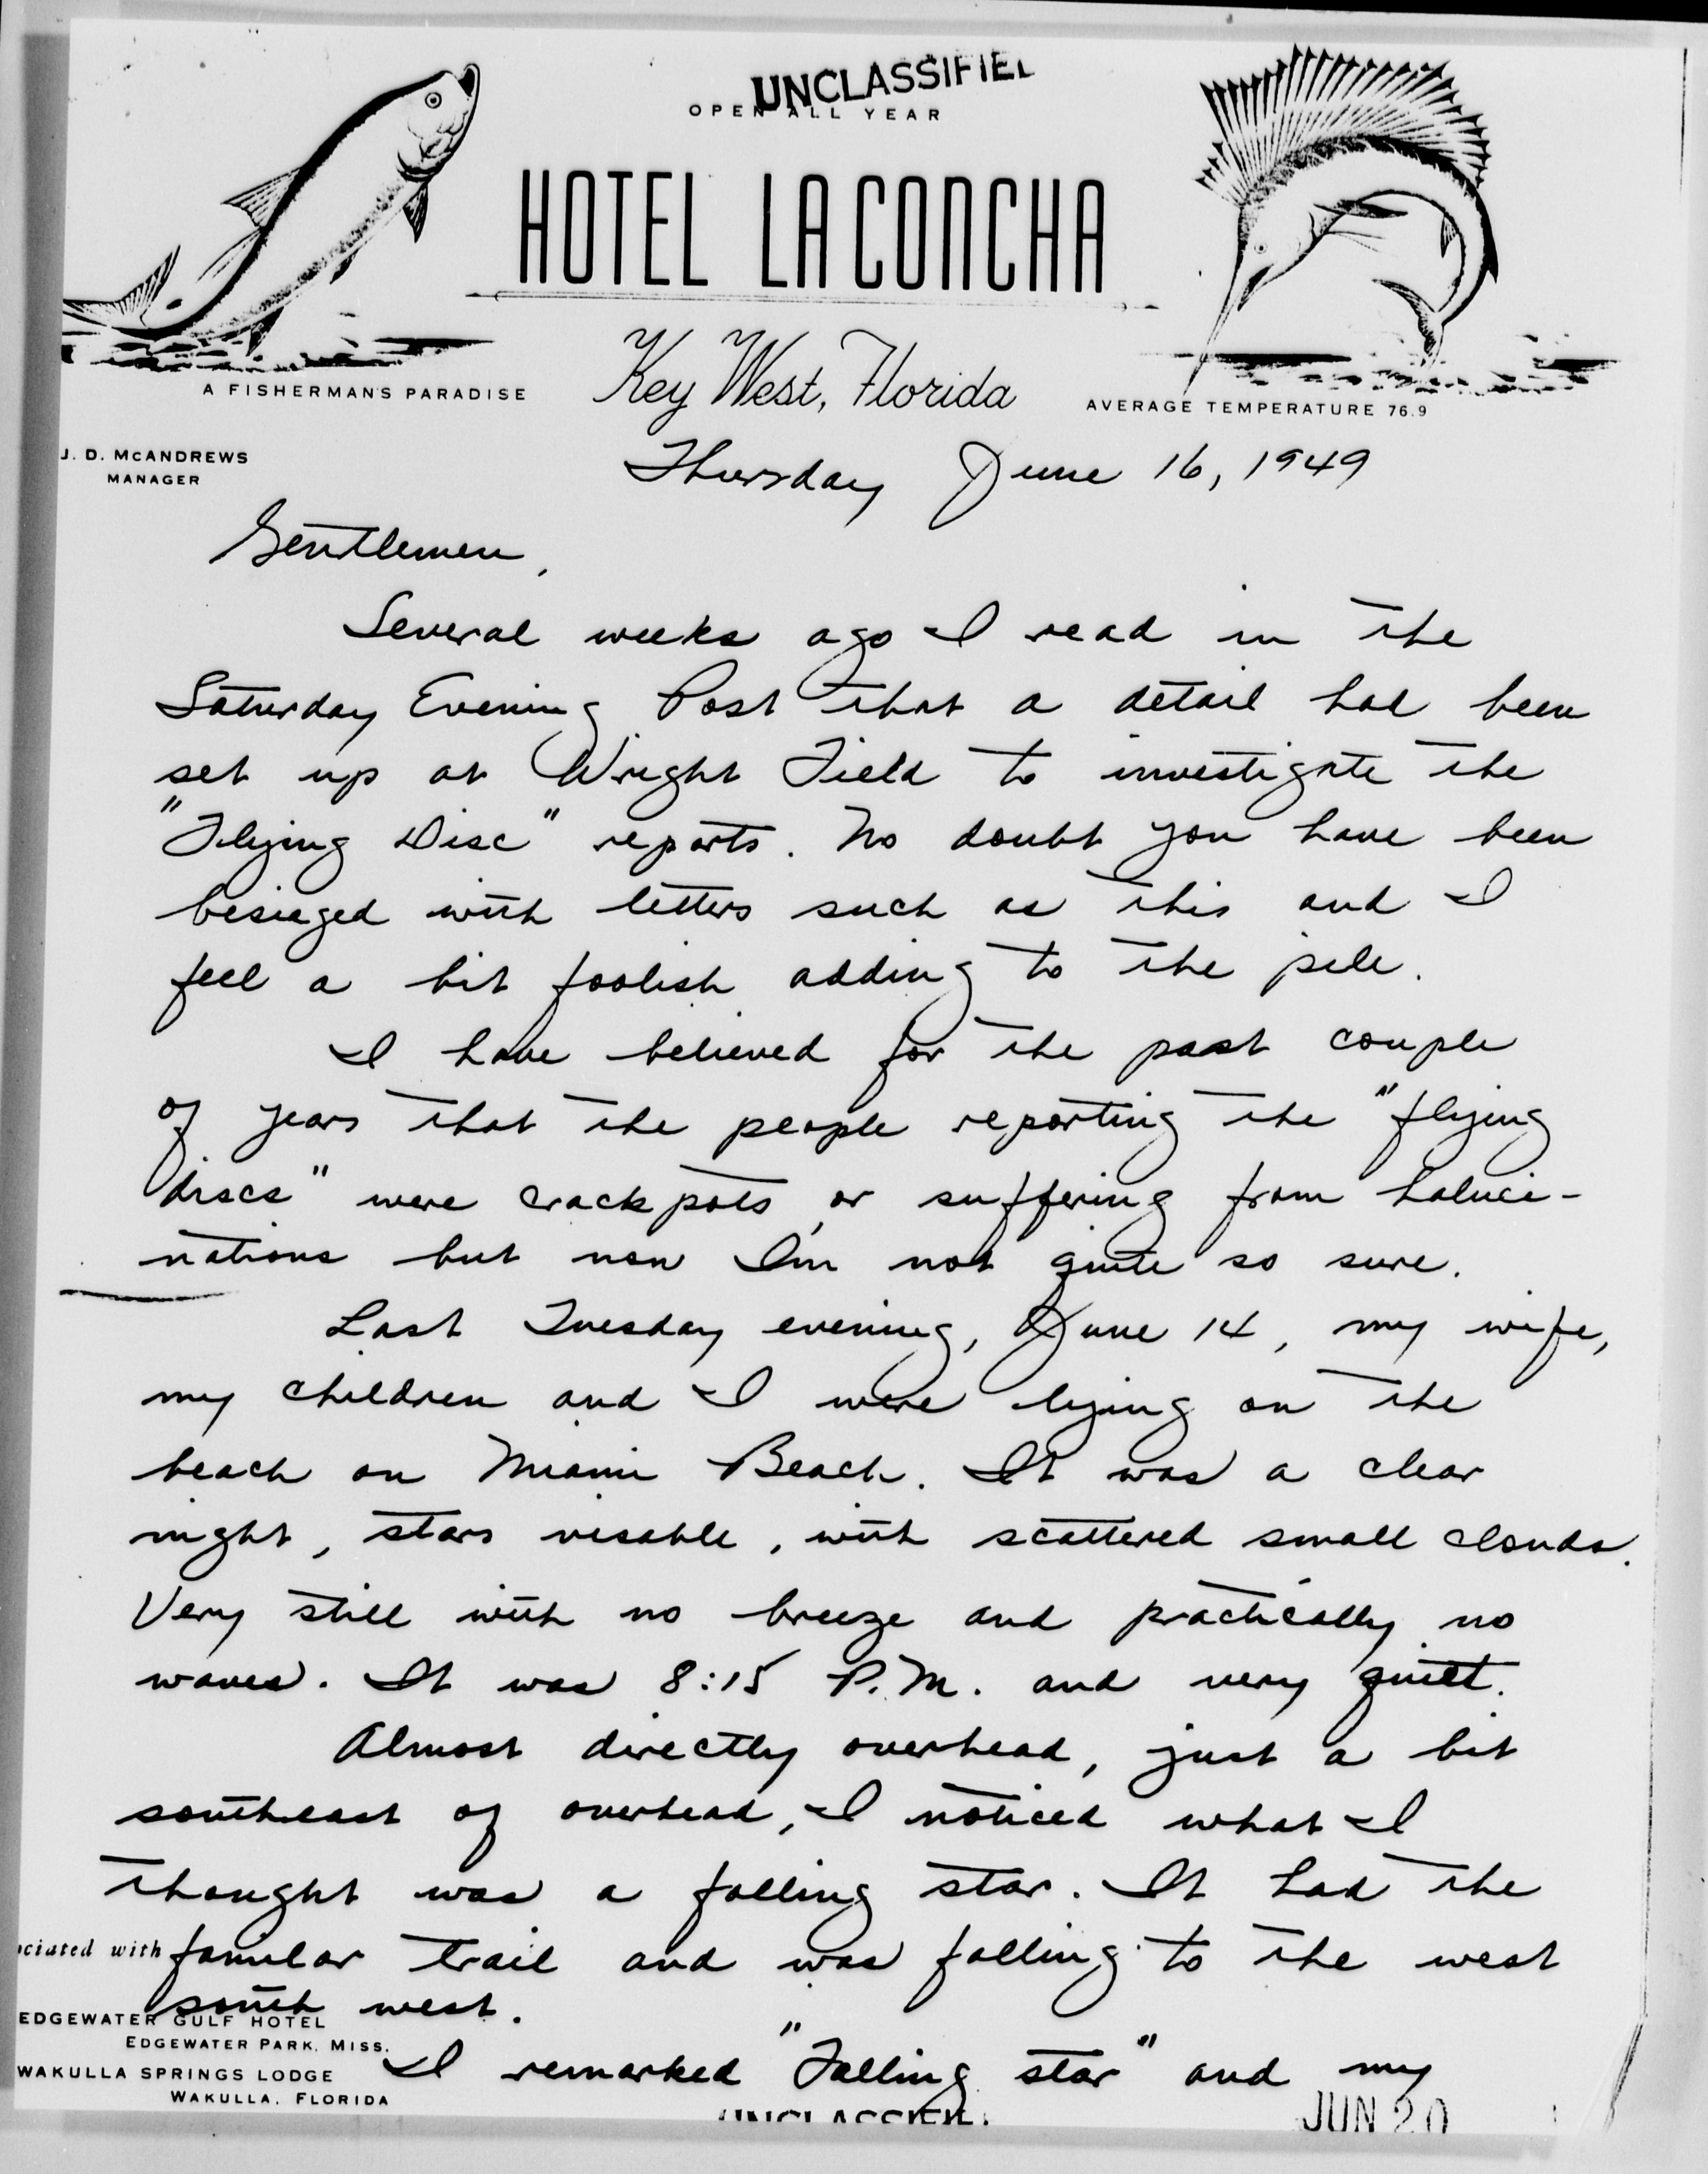 UNCLASSIFIED
OPEN ALL YEAR
HOTEL LA CONCHA
Key West, Florida
A FISHERMAN'S PARADISE
AVERAGE TEMPERATURE 76.9
J. D. McANDREWS
MANAGER
Thursday June 16, 1949
Gentlemen,
Several weeks ago I read in the
Saturday Evening Post that a detail had been
set up at Wright Field to investigate the
"Flying Disc" reports. No doubt you have been
besieged with letters such as this and I
feel a bit foolish adding to the pile.
I have believed for the past couple
of years that the people reporting the "flying
discs" were crackpots, or suffering from haluci-
nations but now I'm not quite so sure.
Last Tuesday evening, June 14, my wife,
my children and I were lying on the
beach on Miami Beach. It was a clear
night, stars visable, with scattered small clouds.
Very still with no breeze and practically no
waves. It was 8:15 P.M. and very quiet.
Almost directly overhead, just a bit
southeast of overhead, I noticed what I
thought was a falling star. It had the
familar trail and was falling to the west
south west.
I remarked "Falling star" and my
ciated with
EDGEWATER GULF HOTEL
EDGEWATER PARK, MISS.
WAKULLA SPRINGS LODGE
WAKULLA, FLORIDA
UNCLASSIFIED
JUN 20